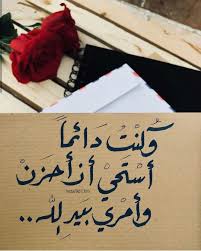 وكنتُ دَائماً
أستَحيْ أن أحزَنْ
وأمْري بَيدِ للّه ..